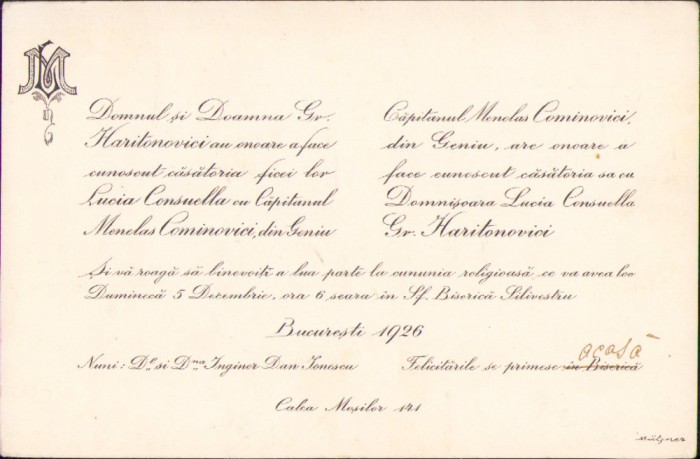 M
Domnul și Doamna Gr.
Haritonovici au onoare a face
cunoscut căsătoria ficei lor
Lucia Consuella cu Căpitanul
Menelas Cominovici, din Geniu
Căpitanul Menelas Cominovici,
din Geniu, are onoare a
face cunoscut căsătoria sa cu
Domnișoara Lucia Consuella
Gr. Haritonovici
Și vă roagă să binevoiți a lua parte la cununia religioasă ce va avea loc
Duminecă 5 Decembrie, ora 6 seara în Sf. Biserică Silivestru
București 1926
Nuni: Dl. si Dna Inginer Dan Ionescu
acasă
Felicitările se primesc in Biserică
Calea Moșilor 141